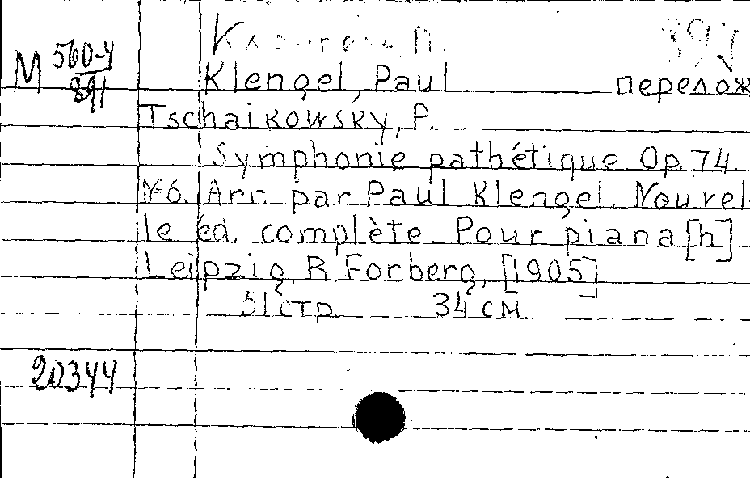 М 560-4/891
Klengel, Paul перелож
Tschaikowsky, P.
Symphonie pathétique Op. 74.
№6. Arr. par Paul Klengel. Nouvel-
le éd. complète. Pour piana [h]
Leipzig R. Forberg, [1905]
51 стр. 34 см.
20344